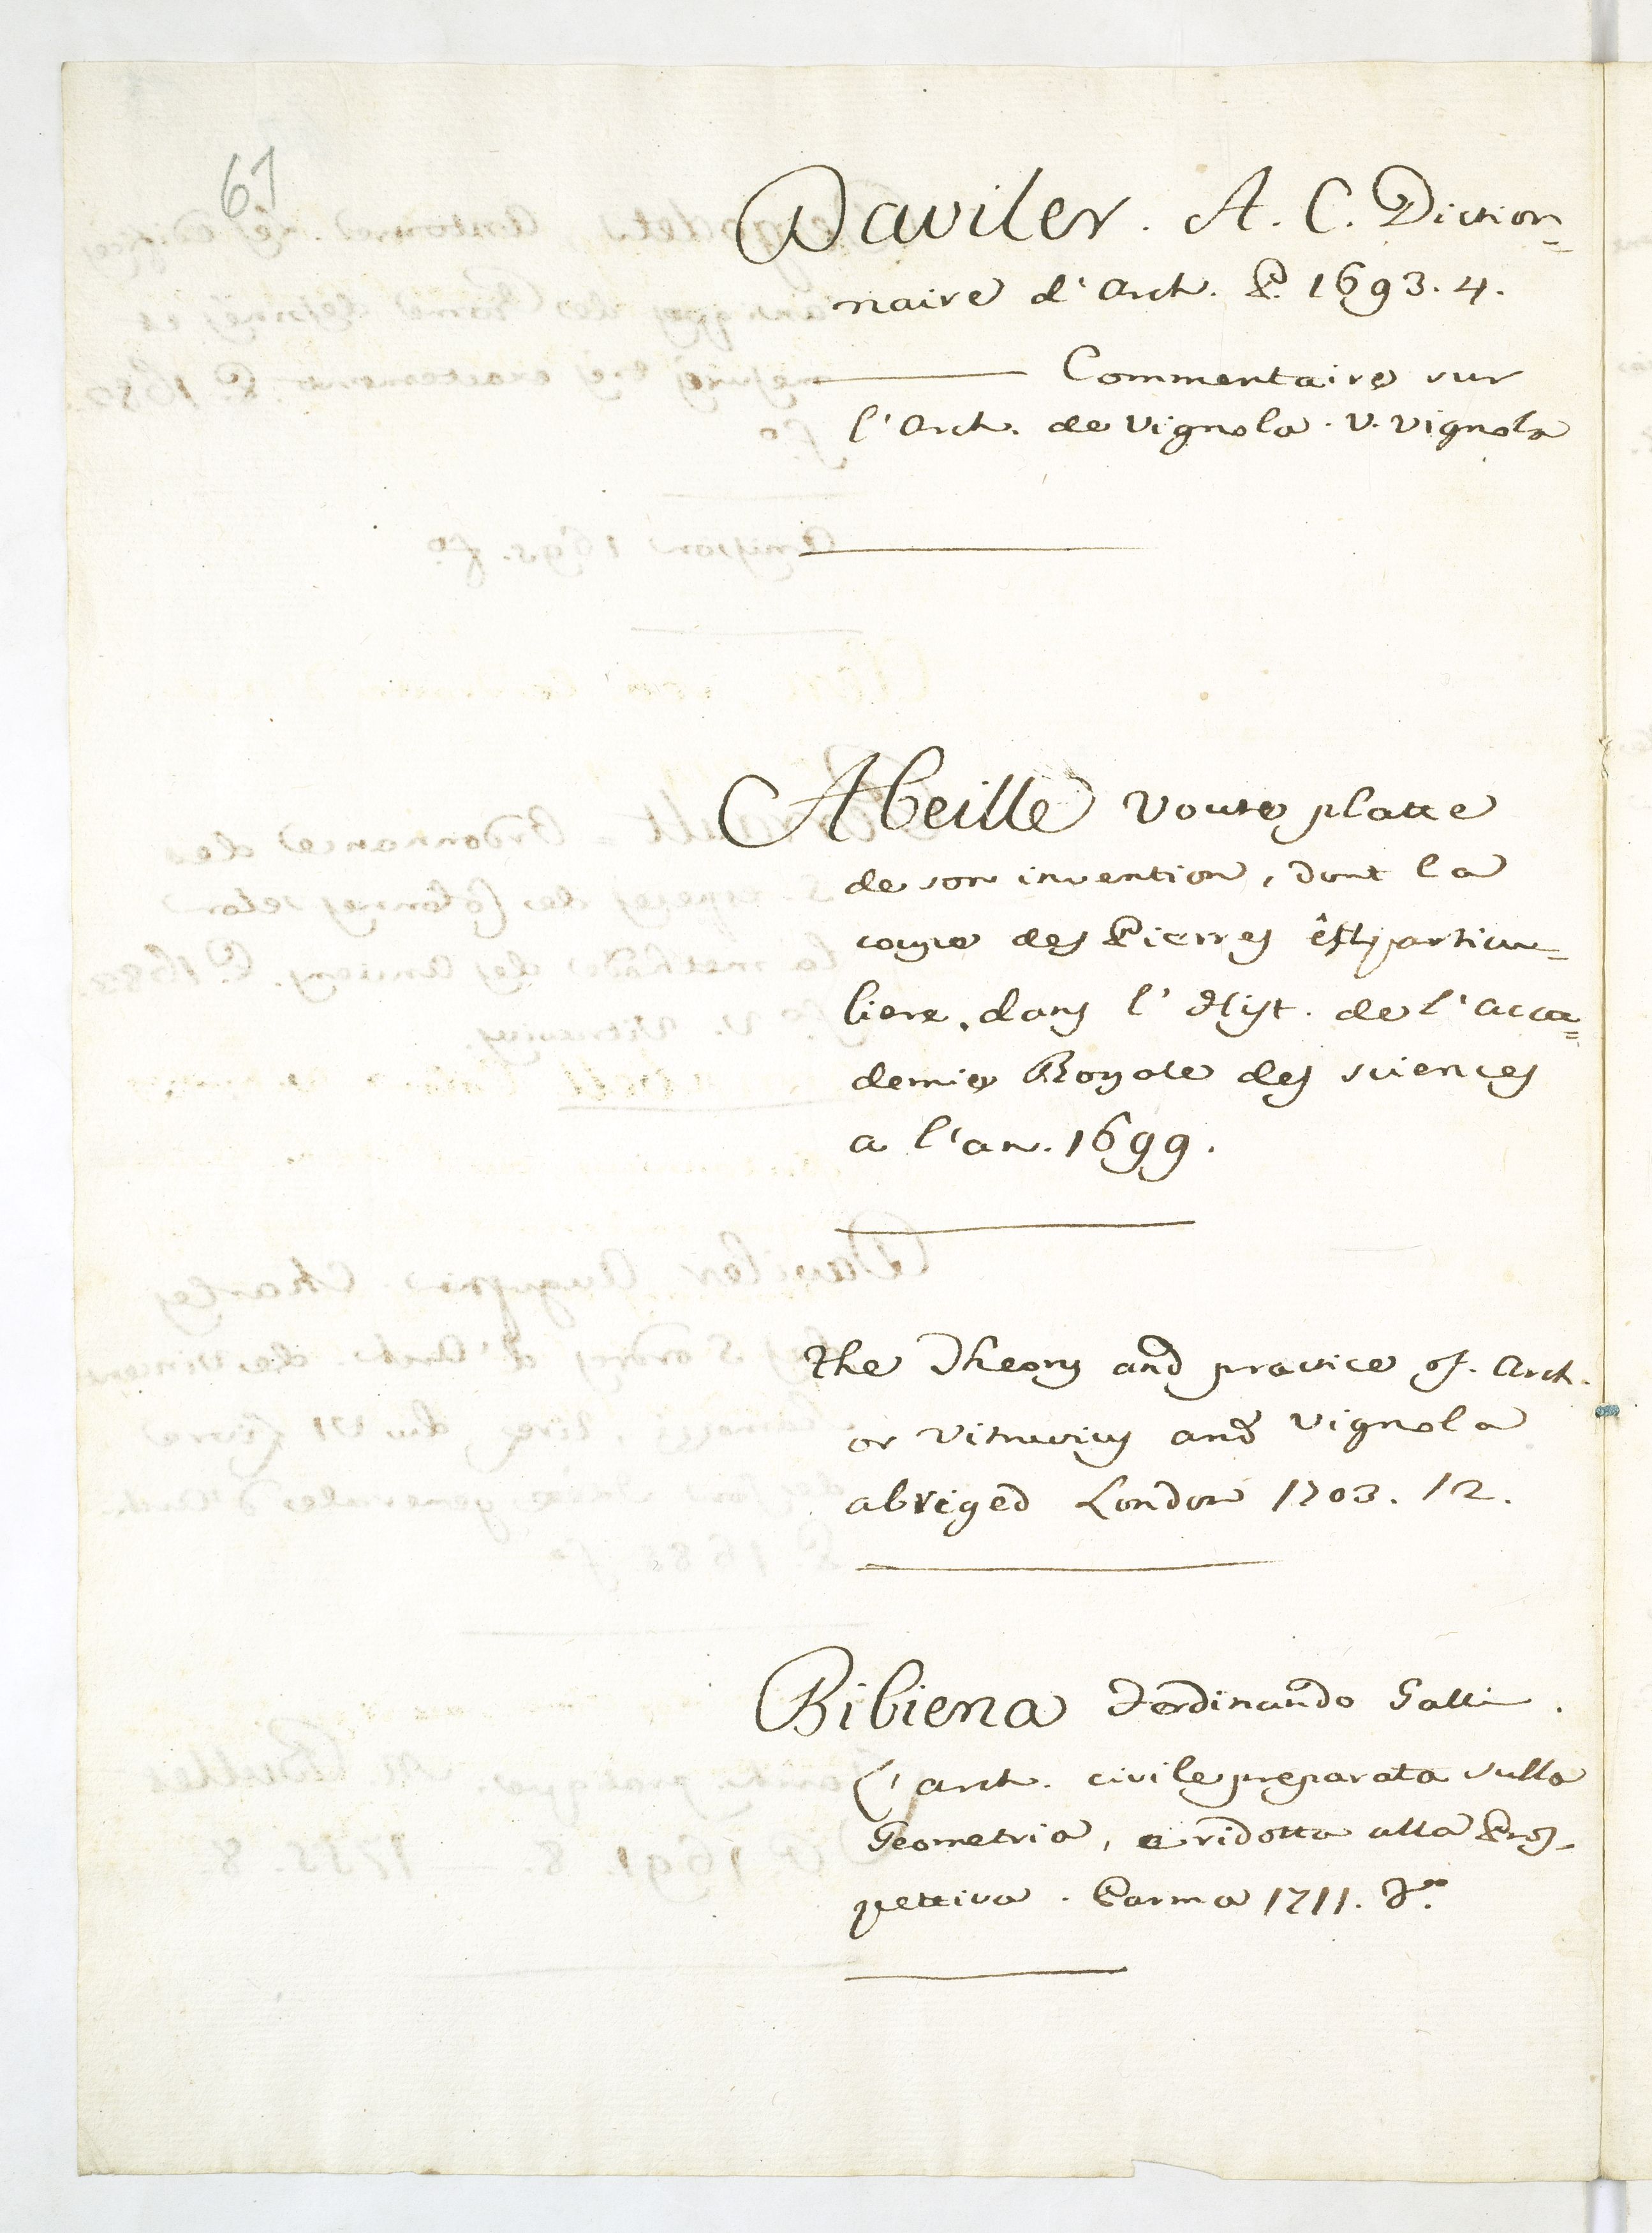 67
Daviler. A. C. Diction=
naire d'Arch. P. 1693. 4.
Commentaire sur
l'Arch. de Vignola. V. Vignola
Abeille Voute platte
de son invention, dont la
coupe des Pierres êst particu=
liere, dans l'Hist. de l'Acca=
demie Royale des sciences
a l'an. 1699.
The Theory and practice of. Arch.
or Vitruvius and Vignola
abriged London 1703. 12.
Bibiena Ferdinando Galli.
L'arch. civile preparata sulla
Geometria, e ridotta alla Pros=
pettiva. Parma 1711. Fo.